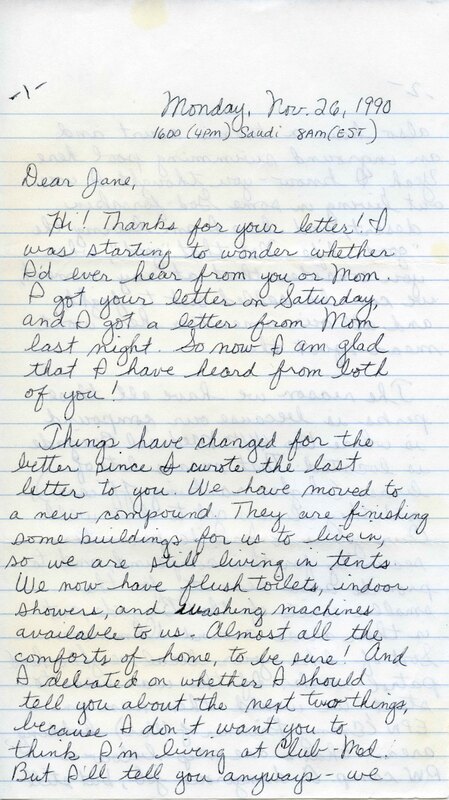 -1-
Monday, Nov. 26, 1990
1600 (4pm) Saudi 8AM (EST)
Dear Jane,
Hi! Thanks for your letter! I
was starting to wonder whether
I'd ever hear from you or Mom.
I got your letter on Saturday,
and I got a letter from Mom
last night. So now I am glad
that I have heard from both
of you!
Things have changed for the
better since I wrote the last
letter to you. We have moved to
a new compound. They are finishing
some buildings for us to live in,
so we are still living in tents.
We now have flush toilets, indoor
showers, and washing machines
available to us. Almost all the
comforts of home, to be sure! And
I debated on whether I should
tell you about the next two things,
because I don't want you to
think I'm living at Club-Med.
But I'll tell you anyways - we